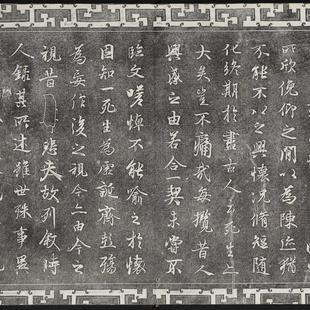 所欣俛仰之間以為陳迹猶
不能不以之興懷況脩短隨
化終期於盡古人云死生亦
大矣豈不痛哉每攬昔人
興感之由若合一契未嘗不
臨文嗟悼不能喻之於懷
固知一死生為虛誕齊彭殤
為妄作後之視今亦由今之
視昔悲夫故列敘時
人錄其所述雖世殊事異